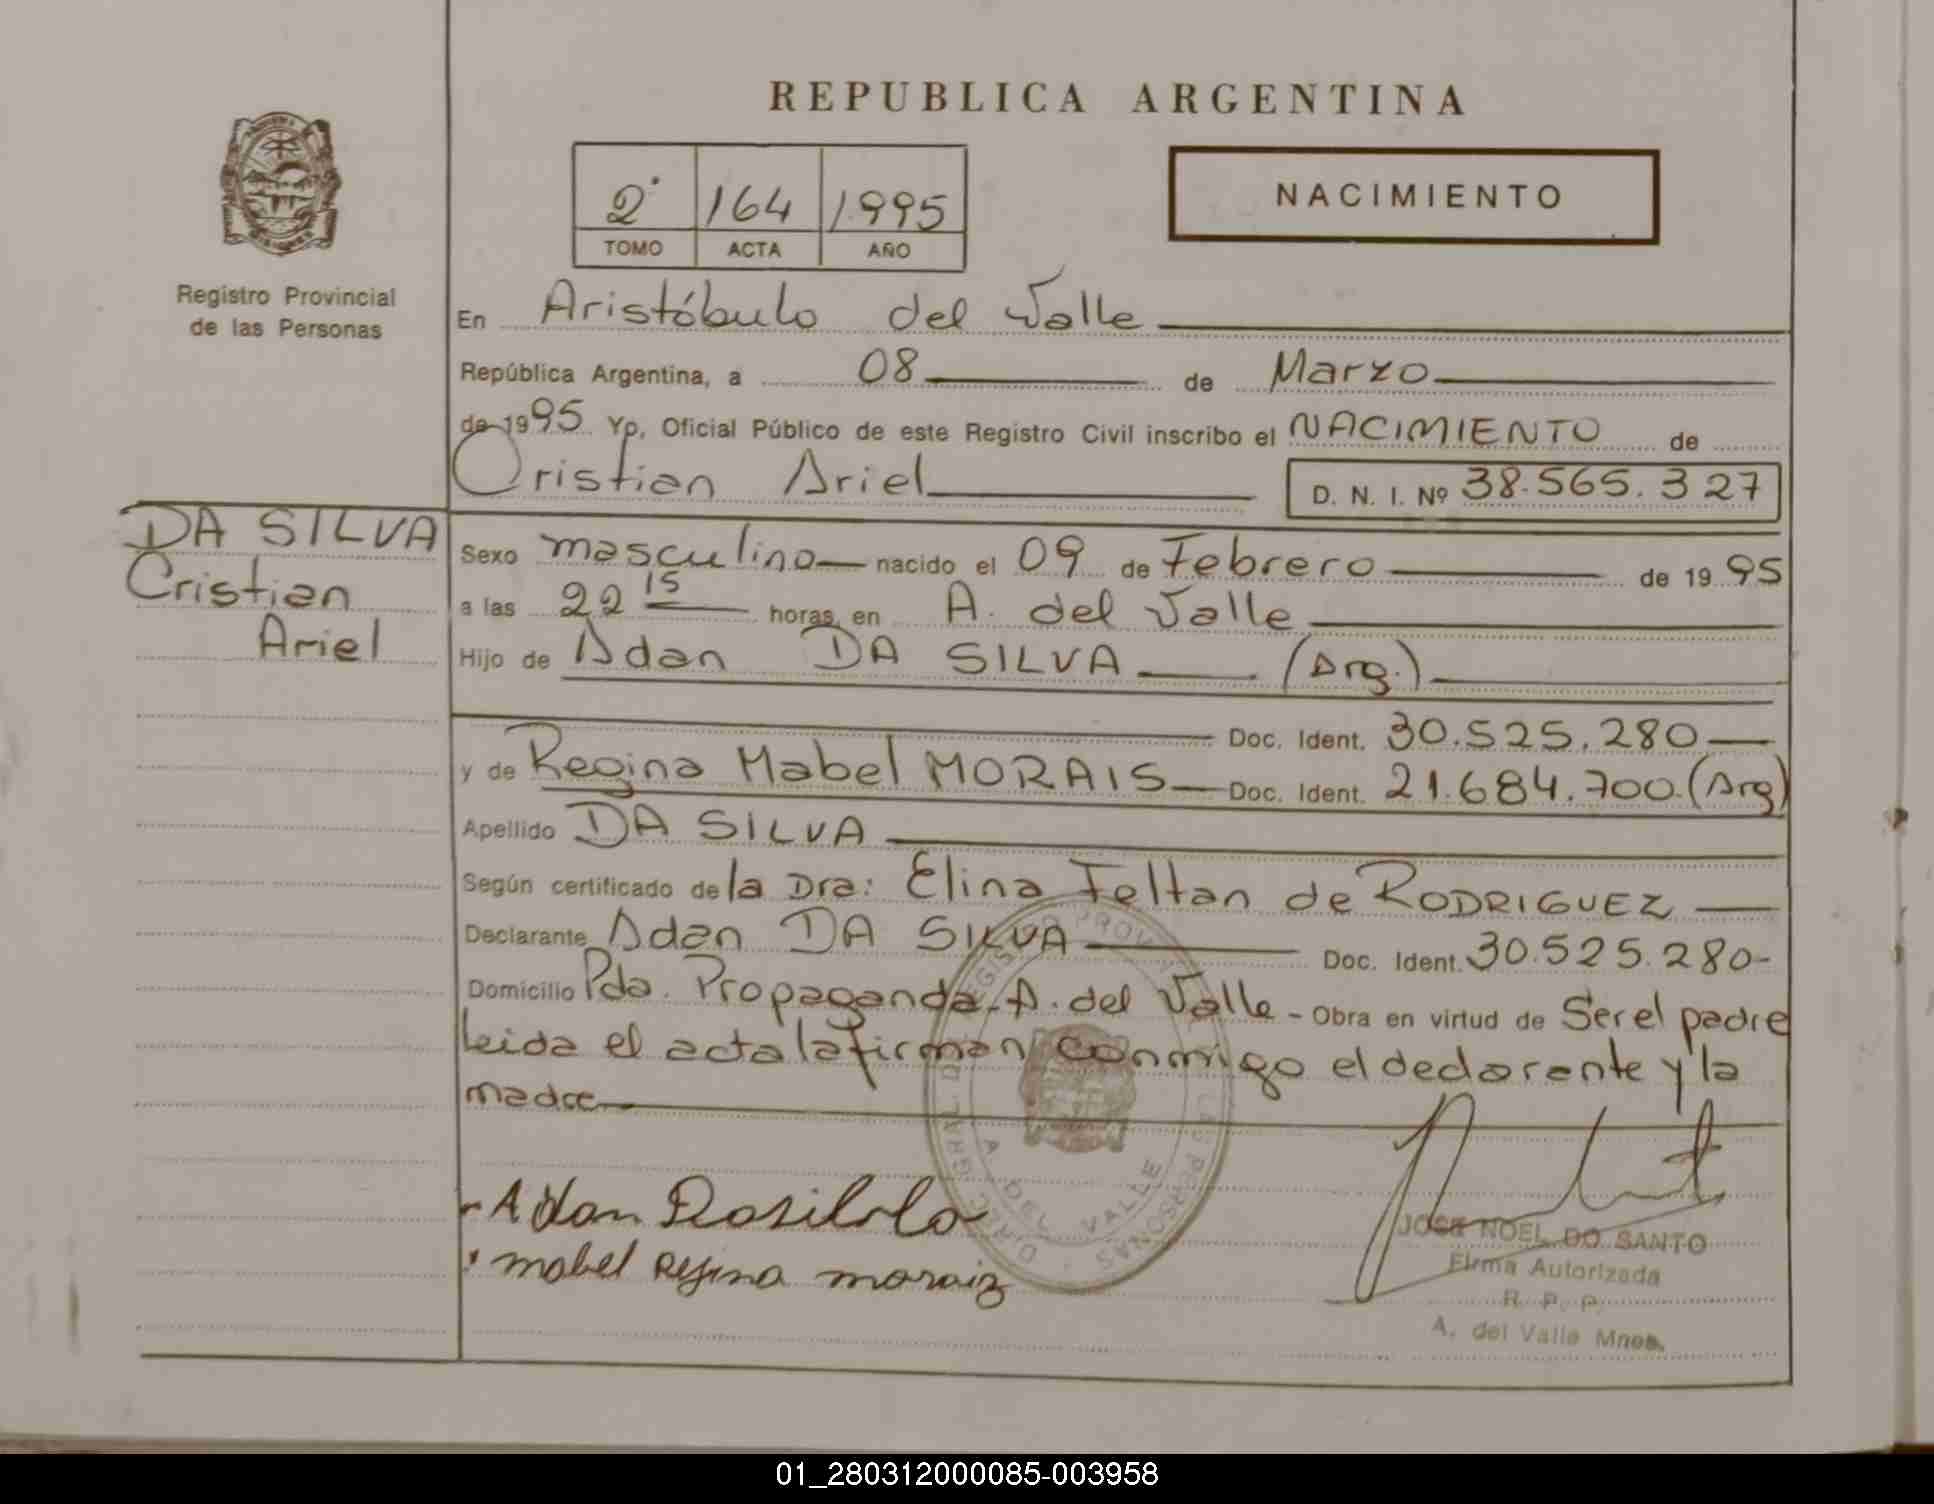 REPUBLICA ARGENTINA
2° 164 1995
TOMO ACTA AÑO
NACIMIENTO
Registro Provincial
de las Personas
En Aristóbulo del Valle
República Argentina, a 08 de Marzo
de 1995 Yo, Oficial Público de este Registro Civil inscribo el NACIMIENTO de
Cristian Ariel D. N. I. Nº 38.565.327
DA SILVA
Cristian
Ariel
Sexo masculino nacido el 09 de Febrero de 1995
a las 22 15 horas, en A. del Valle
Hijo de Adan DA SILVA (Arg.)
Doc. Ident. 30.525.280
y de Regina Mabel MORAIS Doc. Ident. 21.684.700.(Arg)
Apellido DA SILVA
Según certificado de la Dra: Elina Feltan de RODRIGUEZ
Declarante Adan DA SILVA Doc. Ident. 30.525.280-
Domicilio Pda. Propaganda-A. del Valle - Obra en virtud de Ser el padre
leida el acta la firman conmigo el declarante y la
madre
Adan Dasilva
mabel Regina moraiz
DIREC. GRAL. DEL REGISTRO PROVINCIAL DE LAS PERSONAS
A. DEL VALLE
JOSE NOEL DO SANTO
Firma Autorizada
R. P. P.
A. del Valle Mnes.
01_280312000085-003958